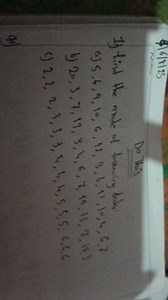 6/1/23
Do this
1) find the mode of following data
a) 5, 6, 9, 10, 6, 12, 3, 6, 11, 10, 4, 6, 7
b) 20, 3, 7, 13, 3, 4, 6, 7, 19, 15, 7, 18, 3
c) 2, 2, 2, 3, 3, 3, 4, 4, 4, 5, 5, 5, 6, 6, 6.